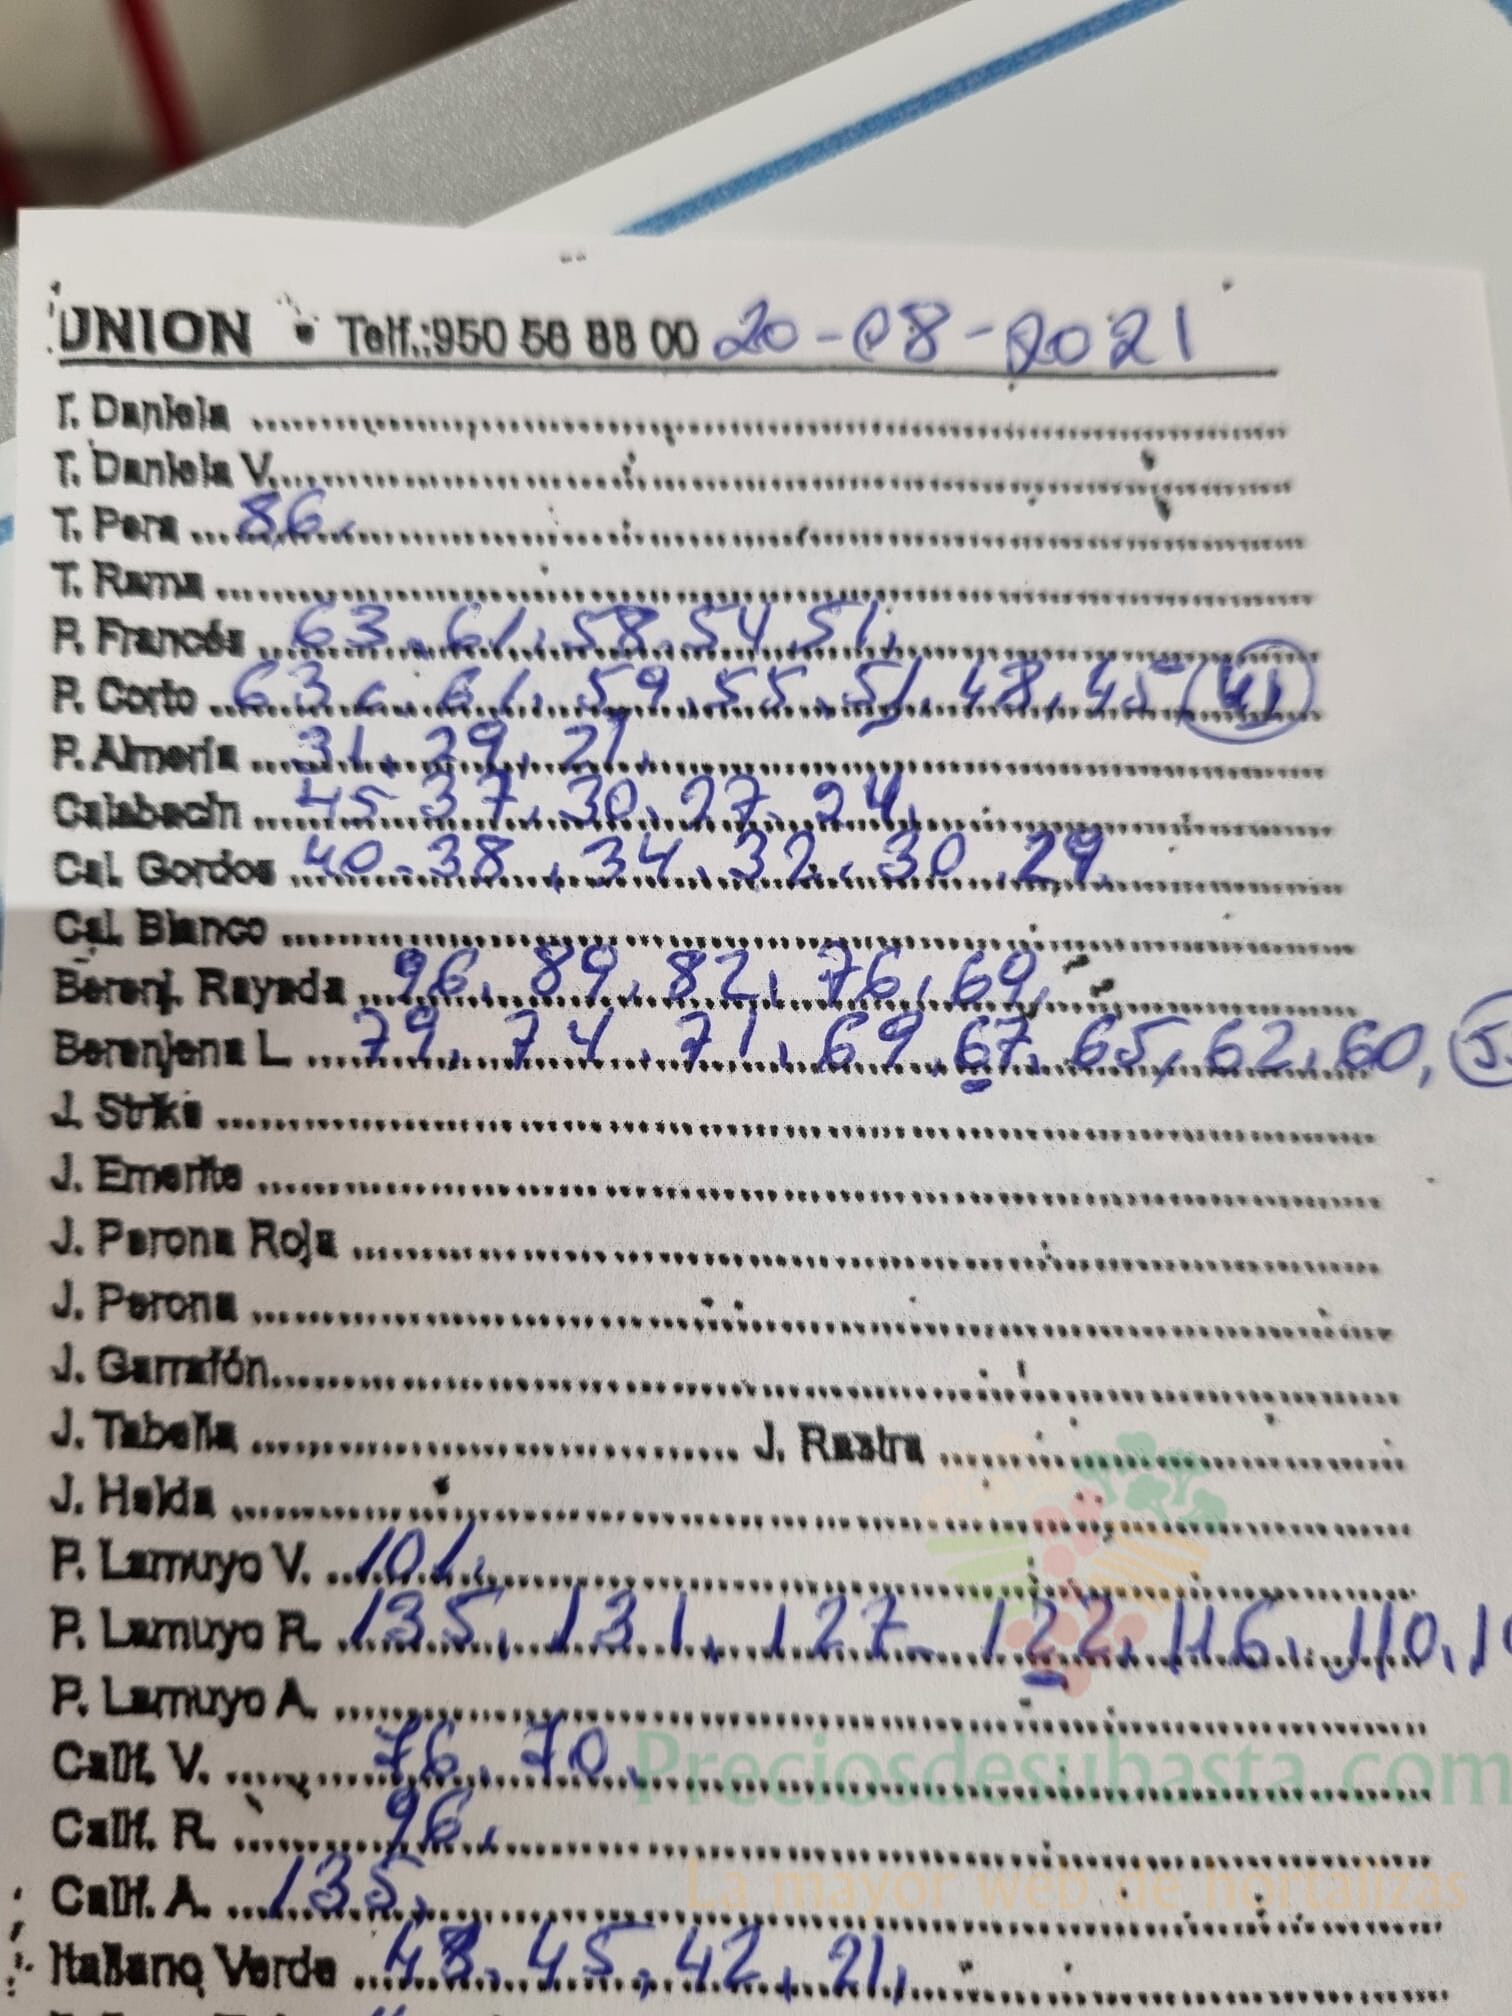 UNION • Telf.:950 58 88 00 20-08-2021
T. Daniela
T. Daniela V.
T. Pera 86.
T. Rama
P. Francés 63. 61. 58. 54. 51.
P. Corto 63. 61. 59. 55. 51. 48. 45 41
P. Almería 31. 29. 21.
Calabacín 45 37. 30. 27. 24.
Cal. Gordos 40. 38. 34. 32. 30. 29.
Cal. Blanco
Berenj. Rayada 96. 89. 82. 76. 69.
Berenjena L. 79. 74. 71. 69. 67. 65, 62. 60,
J. Strike
J. Emerite
J. Perona Roja
J. Perona
J. Garrafón
J. Tabella J. Rastra
J. Helda
P. Lamuyo V. 101.
P. Lamuyo R. 135. 131. 127. 122. 116. 110.
P. Lamuyo A.
Calif. V. 76. 70.
Preciosdesubasta.com
Calif. R. 96.
La mayor web de hortalizas
Calif. A. 135.
Italiano Verde 48. 45. 42. 21.